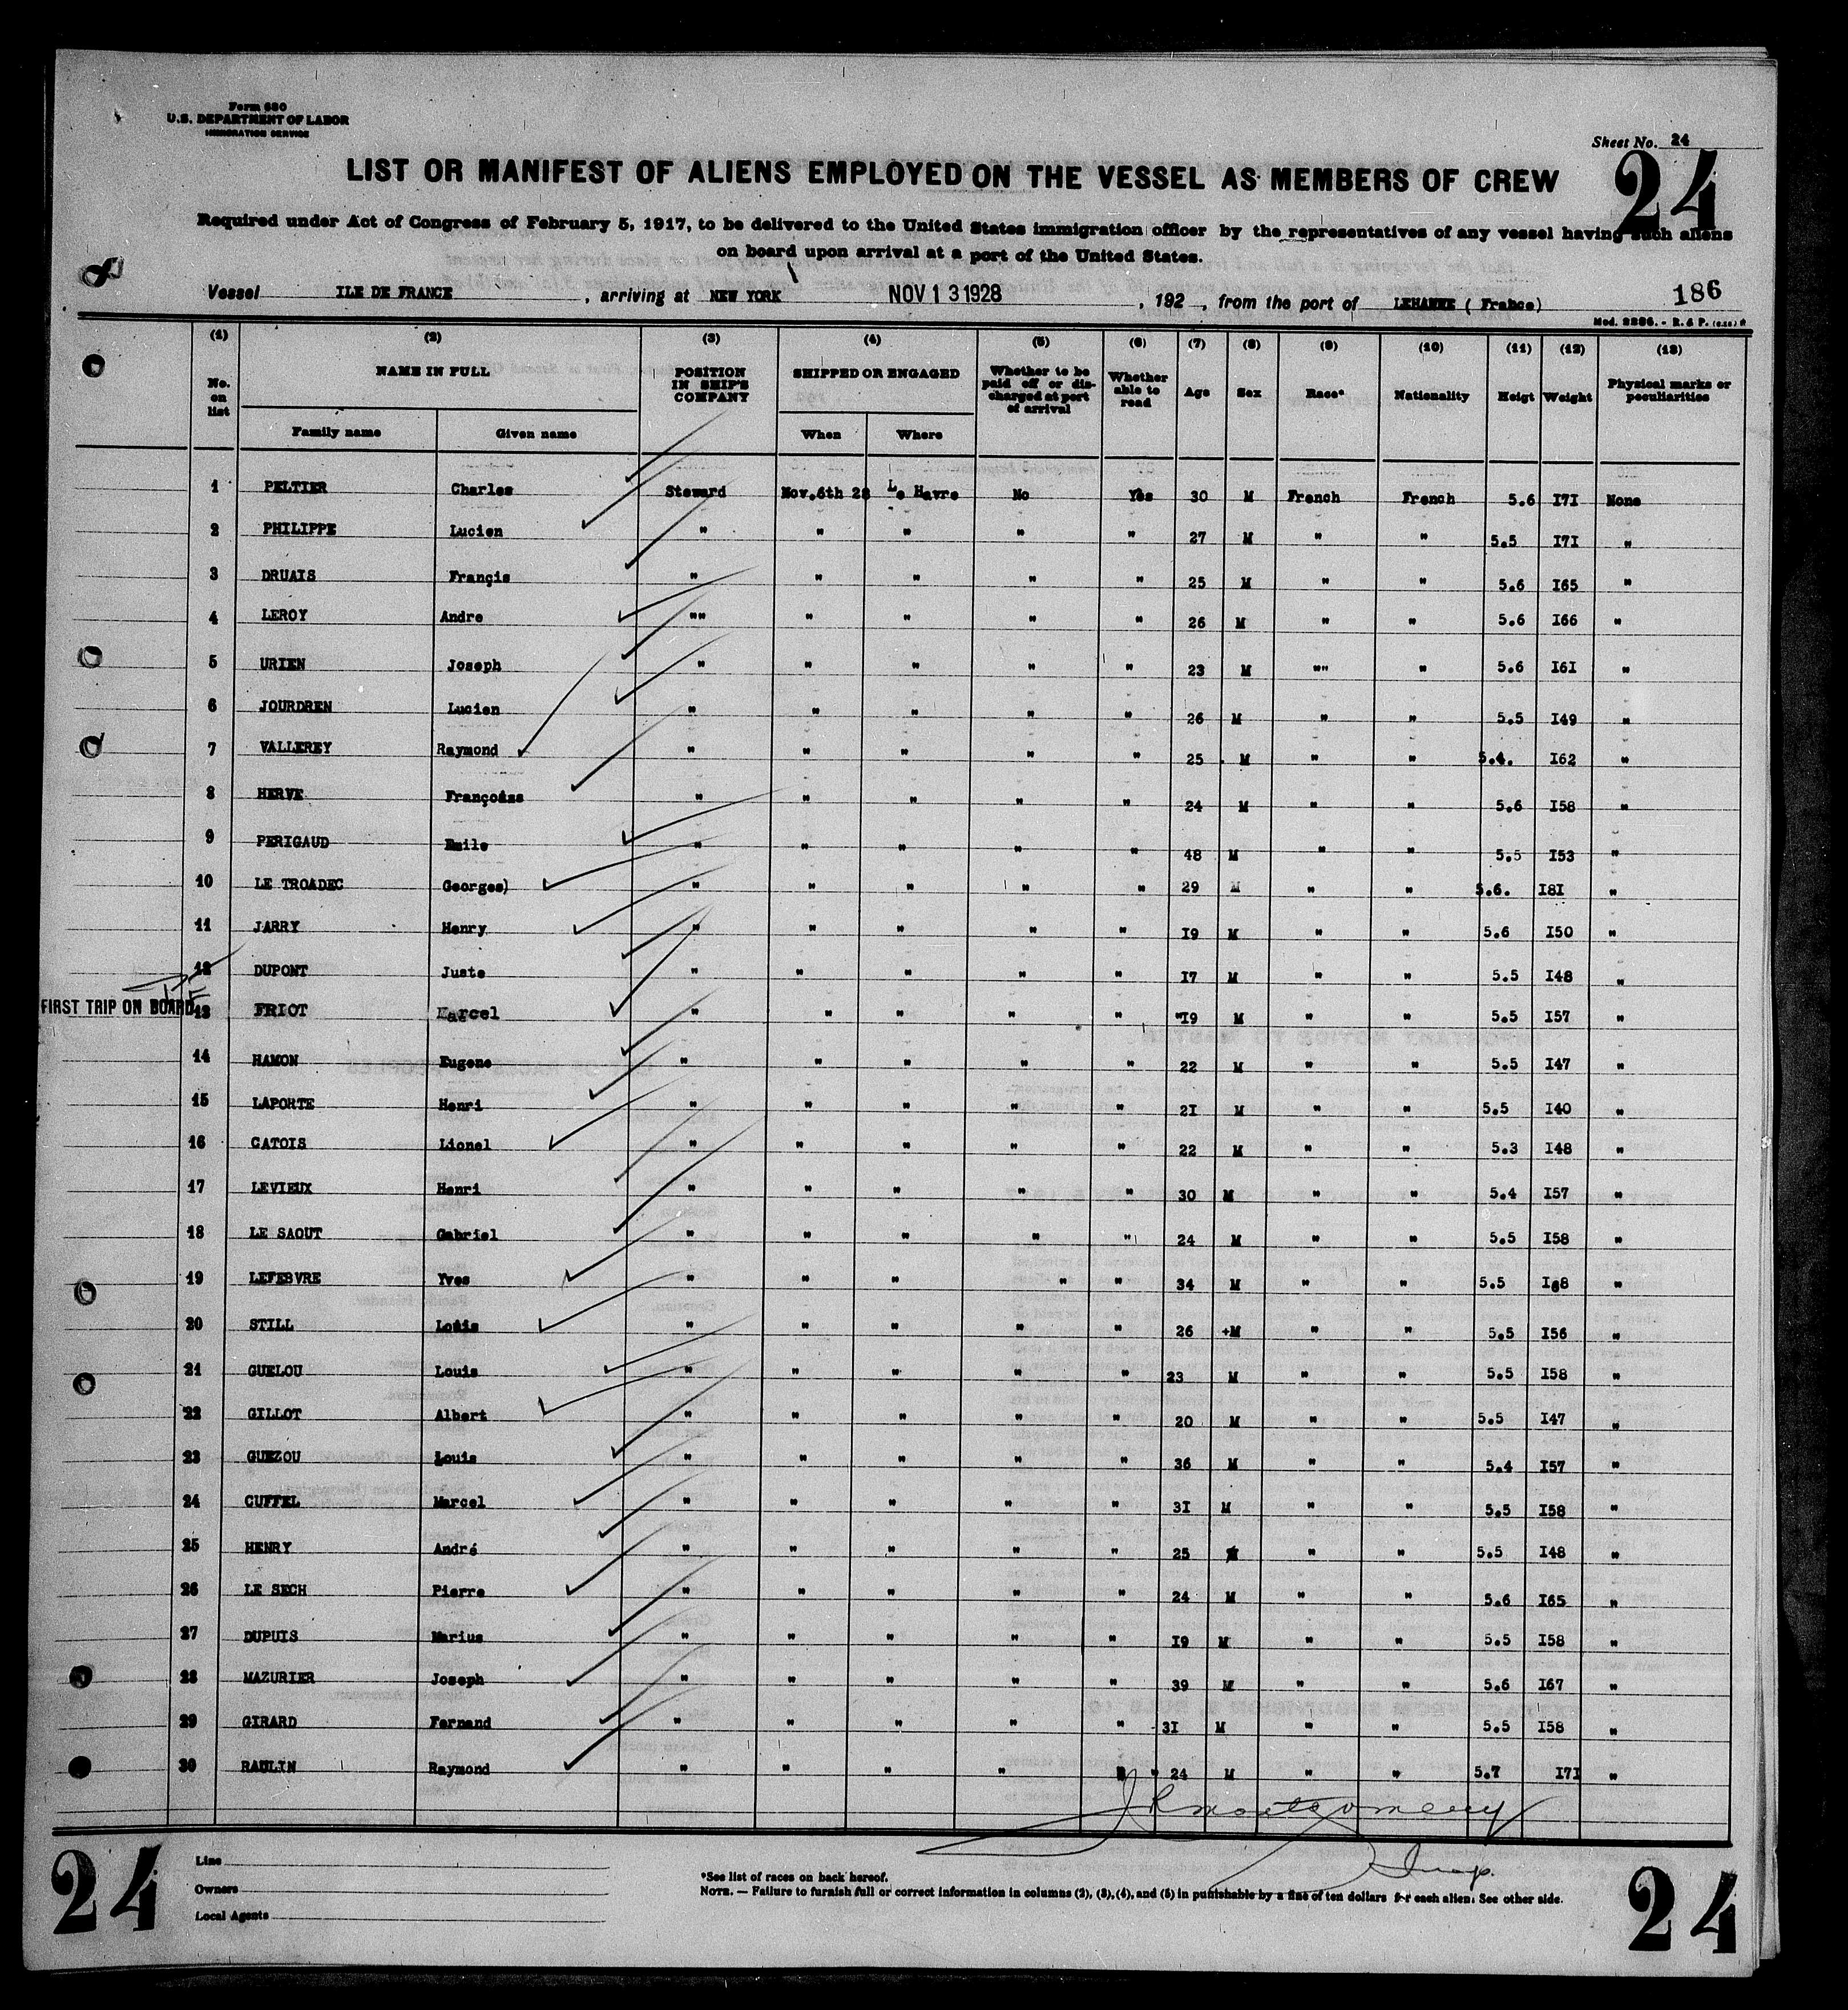 Form 680
U.S. DEPARTMENT OF LABOR
IMMIGRATION SERVICE
Sheet No. 24
24
LIST OR MANIFEST OF ALIENS EMPLOYED ON THE VESSEL AS MEMBERS OF CREW
Required under Act of Congress of February 5, 1917, to be delivered to the United States immigration officer by the representatives of any vessel having such aliens
on board upon arrival at a port of the United States.
Vessel ILE DE FRANCE , arriving at NEW YORK NOV 13 1928 , 192 , from the port of LEHAVRE ( France)
186
Mod. 2296. - R. & P.
(1) (2) (3) (4) (5) (6) (7) (8) (9) (10) (11) (12) (13)
No. on list NAME IN FULL POSITION IN SHIP'S COMPANY SHIPPED OR ENGAGED Whether to be paid off or discharged at port of arrival Whether able to read Age Sex Race* Nationality Heigt Weight Physical marks or peculiarities
Family name Given name When Where
1 PELTIER Charles Steward Nov.6th 28 Le Havre No Yes 30 M French French 5.6 I7I None
2 PHILIPPE Lucien " " " " " 27 M " " 5.5 I7I "
3 DRUAIS Françis " " " " " 25 M " " 5.6 I65 "
4 LEROY Andre "" " " " " 26 M " " 5.6 I66 "
5 URIEN Joseph " " " " " 23 M "" " 5.6 I6I "
6 JOURDREN Lucien " " " " " 26 M " " 5.5 I49 "
7 VALLEREY Raymond " " " " " 25 M " " 5.4. I62 "
8 HERVE Françoizs " " " " " 24 M " " 5.6 I58 "
9 PERIGAUD Emile " " " " " 48 M " " 5.5 I53 "
10 LE TROADEC Georges) " " " " " 29 M " " 5.6. I8I "
11 JARRY Henry " " " " " I9 M " " 5.6 I50 "
12 DUPONT Juste " " " " " I7 M " " 5.5 I48 "
FIRST TRIP ON BOARD 13 FRIOT Marcel " " " " " "I9 M " " 5.5 I57 "
14 HAMON Eugene " " " " " 22 M " " 5.5 I47 "
15 LAPORTE Henri " " " " " 2I M " " 5.5 I40 "
16 CATOIS Lionel " " " " " 22 M " " 5.3 I48 "
17 LEVIEUX Henri " " " " " 30 M " " 5.4 I57 "
18 LE SAOUT Gabriel " " " " " 24 M " " 5.5 I58 "
19 LEFEBVRE Yves " " " " " 34 M " " 5.5 I68 "
20 STILL Louis " " " " " 26 +M " " 5.5 I56 "
21 GUELOU Louis " " " " " 23 M " " 5.5 I58 "
22 GILLOT Albert " " " " " 20 M " " 5.5 I47 "
23 GUEZOU Louis " " " " " 36 M " " 5.4 I57 "
24 CUFFEL Marcel " " " " " 3I M " " 5.5 I58 "
25 HENRY André " " " " " 25 M " " 5.5 I48 "
26 LE SECH Pierre " " " " " 24 M " " 5.6 I65 "
27 DUPUIS Marius " " " " " I9 M " " 5.5 I58 "
28 MAZURIER Joseph " " " " " 39 M " " 5.6 I67 "
29 GIRARD Fernand " " " " " 3I M " " 5.5 I58 "
30 RAULIN Raymond " " " " " 24 M " " 5.7 I7I "
JR Montgomery
Insp.
24
Line
Owners
Local Agents
*See list of races on back hereof.
NOTE. — Failure to furnish full or correct information in columns (2), (3), (4), and (5) in punishable by a fine of ten dollars for each alien. See other side.
24